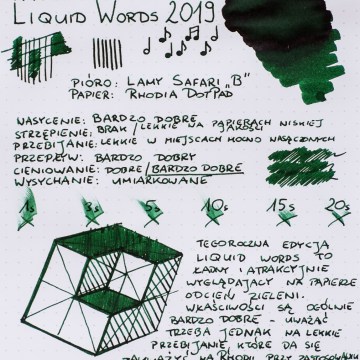 LIQUID WORDS 2019
PIÓRO: LAMY SAFARI "B"
PAPIER: RHODIA DOTPAD
NASYCENIE: BARDZO DOBRE
STRZĘPIENIE: BRAK / LEKKIE NA PAPIERACH NISKIEJ JAKOŚCI
PRZEBIJANIE: LEKKIE W MIEJSCACH MOCNO NASĄCZONYCH
PRZEPŁYW: BARDZO DOBRY
CIENIOWANIE: DOBRE / BARDZO DOBRE
WYSYCHANIE: UMIARKOWANE
1s 3s 5s 10s 15s 20s
TEGOROCZNA EDYCJA
LIQUID WORDS TO
ŁADNY I ATRAKCYJNIE
WYGLĄDAJĄCY NA PAPIERZE
ODCIEŃ ZIELENI.
WŁAŚCIWOŚCI SĄ OGÓLNIE
BARDZO DOBRE - UWAŻAĆ
TRZEBA JEDNAK NA LEKKIE
PRZEBIJANIE, KTÓRE DA SIĘ
ZAUWAŻYĆ NA RHODII PRZY ZASTOSOWANIU